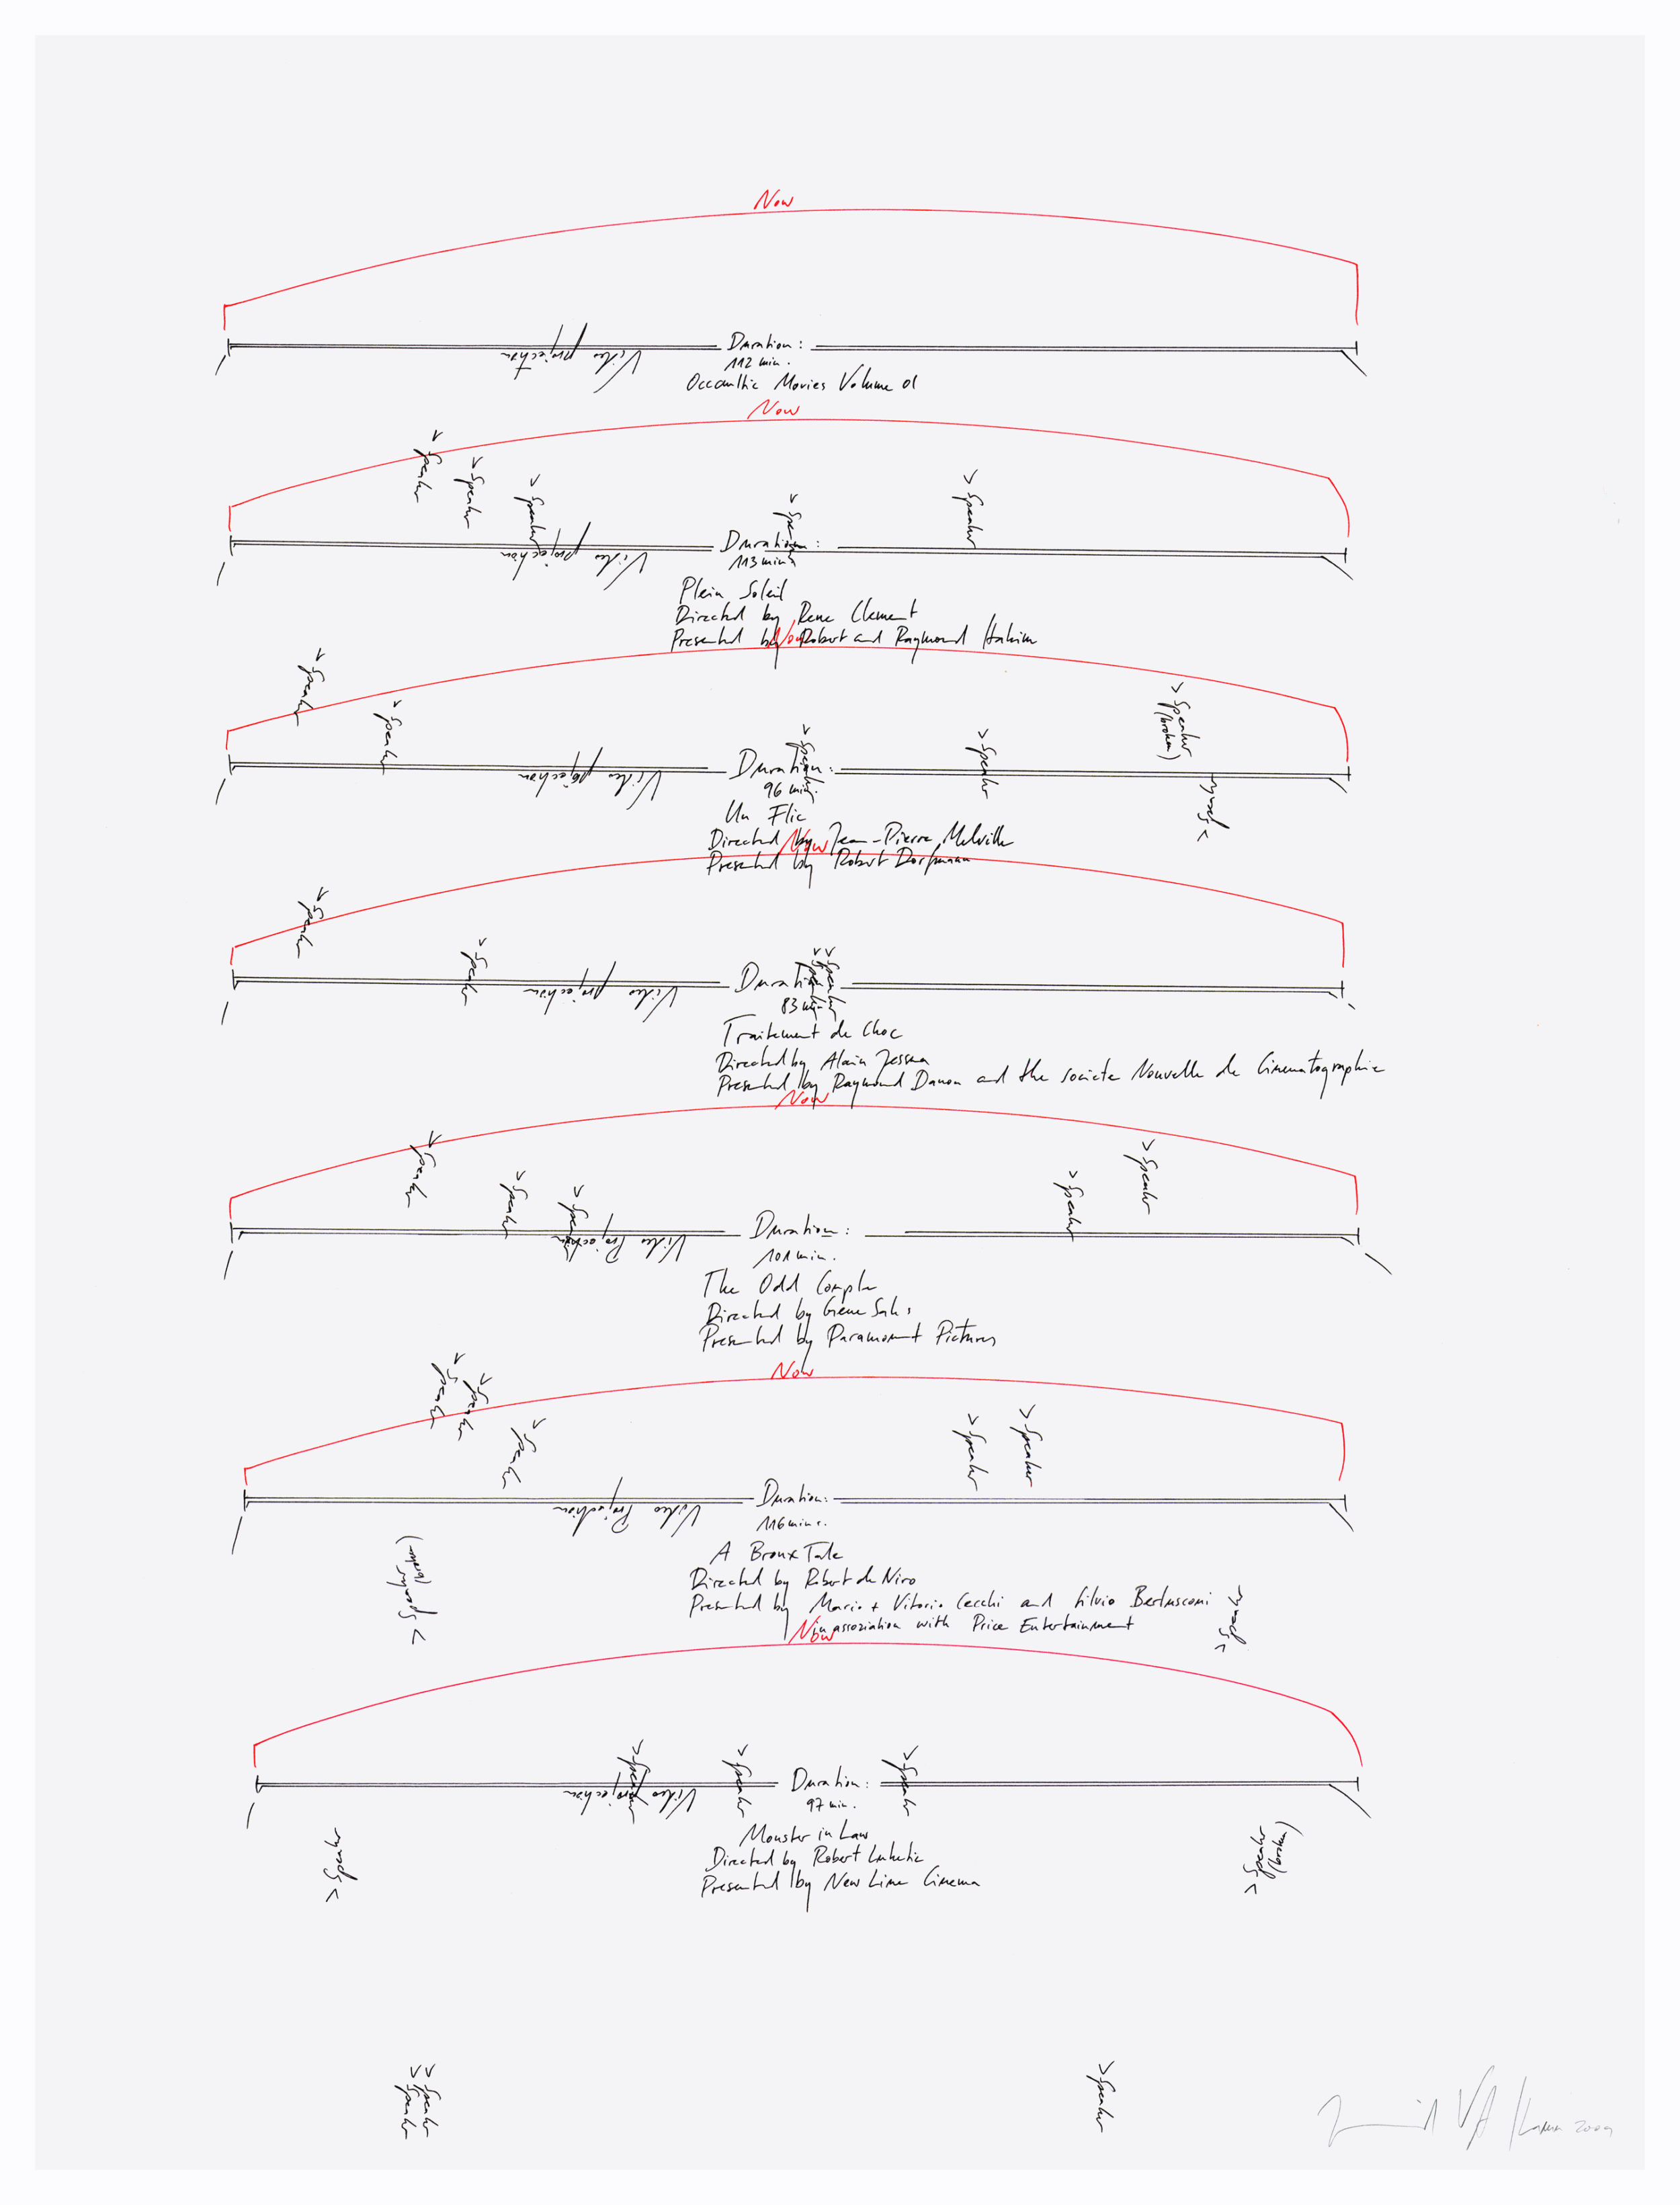 Now
Duration:
Video projection
112 min.
Occaultic Movies Volume 01
Now
> Speaker
> Speaker
> Speaker
> Speaker
> Speaker
Duration:
Video projection
113 min
Plein Soleil
Directed by Rene Clement
Presented by Robert and Raymond Hakim
Now
> Speaker
> Speaker
> Speaker
> Speaker
> Speaker
(broken)
Duration:
Video projection
> Speaker
96 min.
Un Flic
Directed by Jean-Pierre Melville
Presented by Robert Dorfmann
Now
> Speaker
> Speaker
> Speaker
> Speaker
Duration
Video projection
83 min
Traitement de Choc
Directed by Alain Jessua
Presented by Raymond Danon and the societe Nouvelle de Cinematographie
Now
> Speaker
> Speaker
> Speaker
> Speaker
> Speaker
Duration:
Video Projection
101 min.
The Odd Couple
Directed by Gene Saks
Presented by Paramount Pictures
Now
> Speaker
> Speaker
> Speaker
> Speaker
> Speaker
Duration:
Video Projection
116 min.
> Speaker
(broken)
A Bronx Tale
Directed by Robert de Niro
Presented by Mario + Vitorio Cecchi and Silvio Berlusconi
in assoziation with Price Entertainment
> Speaker
Now
> Speaker
> Speaker
> Speaker
Duration:
Video projection
97 min.
> Speaker
> Speaker
(broken)
Monster in Law
Directed by Robert Luketic
Presented by New Line Cinema
> Speaker
> Speaker
> Speaker
2009